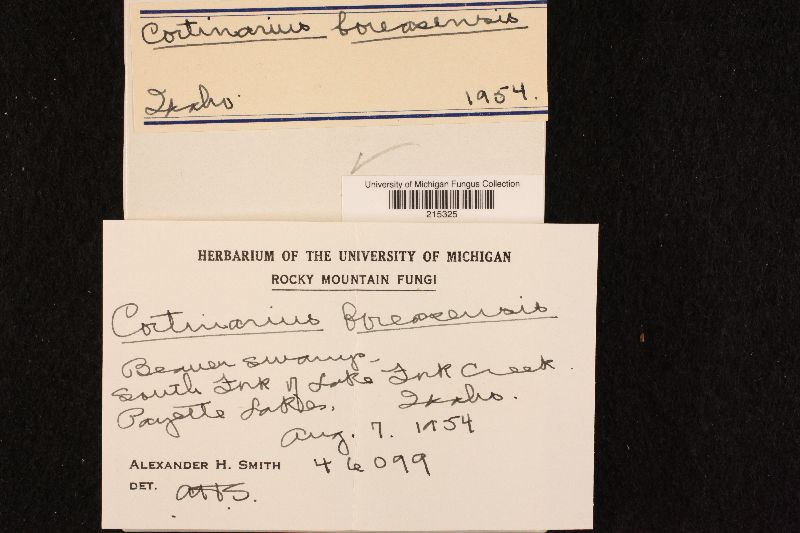 Cortinarius boreasensis
Idaho. 1954.
University of Michigan Fungus Collection
215325
HERBARIUM OF THE UNIVERSITY OF MICHIGAN
ROCKY MOUNTAIN FUNGI
Cortinarius boreasensis
Beaver swamp-
South Fork of Lake Fork Creek.
Payette Lakes, Idaho.
Aug. 7. 1954
ALEXANDER H. SMITH 46099
DET. AHS.